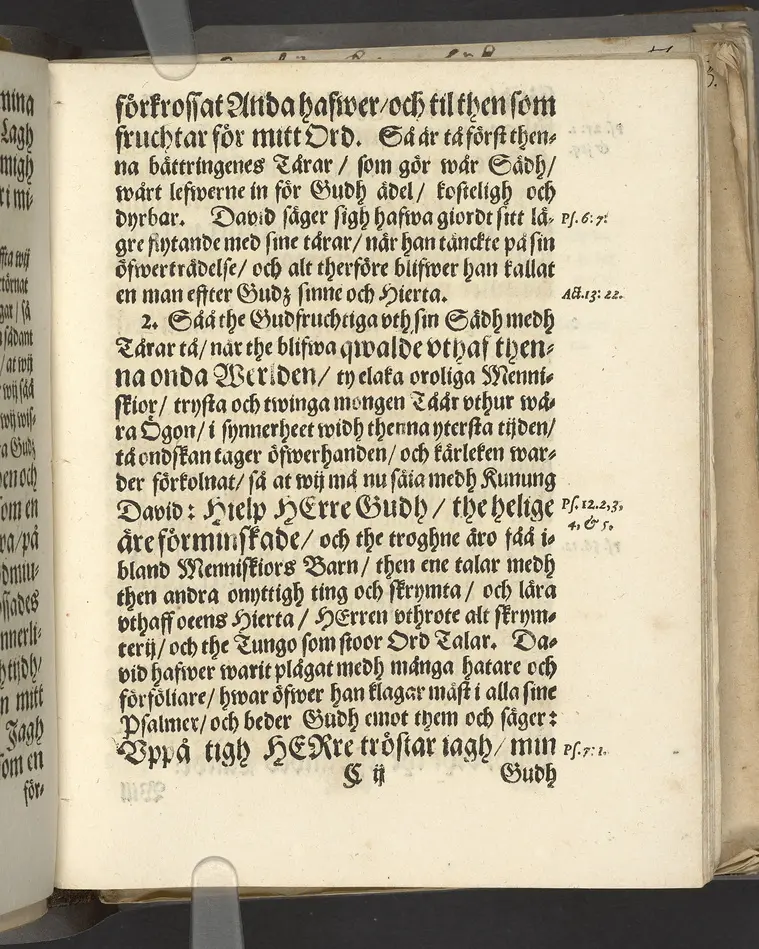 förkrossat Anda hafwer/och til then som
fruchtar för mitt Ord. Så är tå först then-
na bättringenes Tårar / som gör wår Sådh/
wårt lefwerne in för Gudh ådel/ kosteligh och
dyrbar. David säger sigh hafwa giordt sitt lä- Ps. 6: 7.
gre flytande med sine tårar/ når han tänckte på sin
öfwerträdelse/ och alt therföre blifwer han kallat
en man effter Gudz sinne och Hierta. Act. 13: 22.
2. Såå the Gudfruchtiga vth sin Sådh medh
Tårar tå/ når the blifwa qwalde vthaf then-
na onda Werlden/ ty elaka oroliga Menni-
skior/ trysta och twinga mongen Tåår vthur wå-
ra Ögon/ i synnerheet widh thenna ytersta tijden/
tå ondskan tager öfwerhanden/ och kärleken war-
der förkolnat/ så at wij må nu säia medh Kunung
David: Hielp HErre Gudh / the helige Ps. 12. 2, 3,
äre förminskade/ och the troghne äro fåå i- 4, & 5.
bland Menniskiors Barn/ then ene talar medh
then andra onyttigh ting och skrymta/ och lära
vthaff oeens Hierta/ HErren vthrote alt skrym-
terij/ och the Tungo som stoor Ord Talar. Da-
vid hafwer warit plågat medh många hatare och
förföliare/ hwar öfwer han klagar mäst i alla sine
Psalmer/ och beder Gudh emot them och säger:
Vppå tigh HERre tröstar iagh/ min Ps. 7: 1.
C ij Gudh
ning
Lagh
migh
ri mi-
ffta wij
törnat
gat/ så
sådant
/ at wij
wij såå
wij wis-
ra Gudz
en och
som en
ra/ på
dmiu-
ssades
nnerli-
h tydh/
n mitt
Jagh
som en
för-